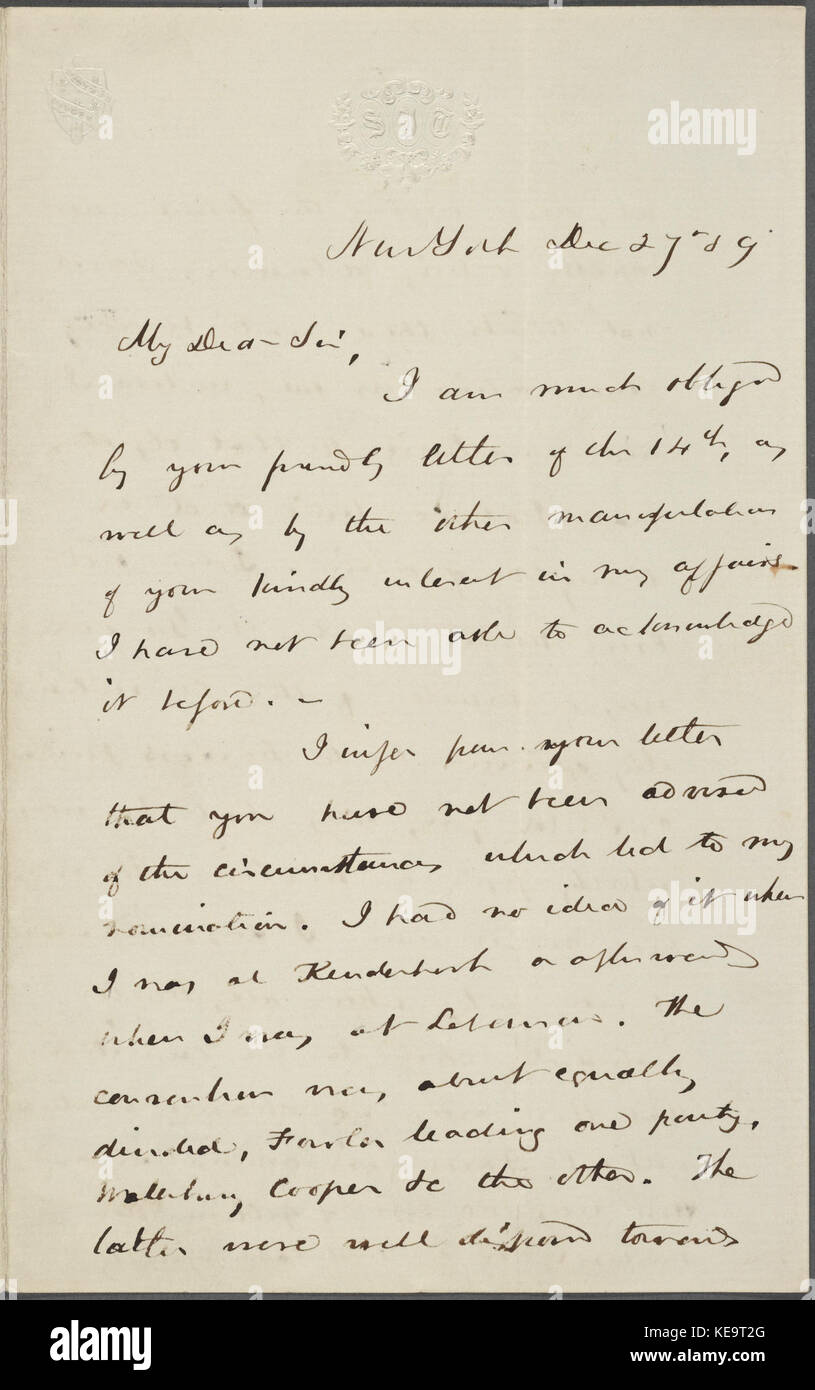 S J T
New York Dec 27th 59
My Dear Sir,
I am much obliged
by your friendly letter of the 14th, as
well as by the other manifestations
of your kindly interest in my affairs.
I have not been able to acknowledge
it before. –
I infer from your letter
that you have not been advised
of the circumstances which led to my
nomination. I had no idea of it when
I was at Kinderhook or afterwards
when I was at Lebanon. The
convention was about equally
divided, Fowler leading one party,
Waterbury Cooper &c the other. The
latter were well disposed towards
alamy
alamy
Image ID: KE9T2G
www.alamy.com